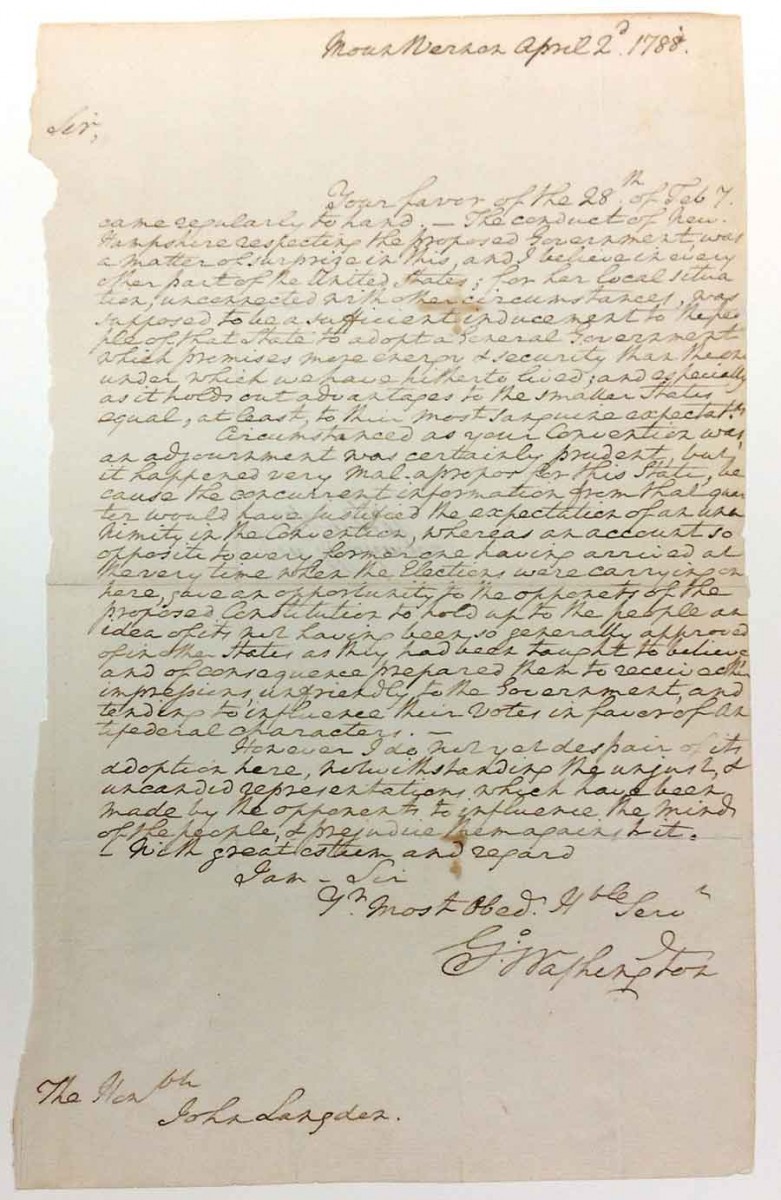 Mount Vernon April 2d. 1788.
Sir,
Your favor of the 28th. of Feby.
came regularly to hand. — The conduct of New
Hampshire respecting the proposed Government was
a matter of surprize in this, and I believe in every
other part of the United States; for her local situa
tion, unconnected with other circumstances, was
supposed to be a sufficient inducement to the peo
ple of that State to adopt a General Government
which promises more energy & security than the one
under which we have hitherto lived; and especially
as it holds out advantages to the smaller States
equal, at least, to their most sanguine expectatns
Circumstanced as your Convention was,
an adjournment was certainly prudent, but
it happened very mal-apropos for this State, be
cause the concurrent information from that quar
ter would have justified the expectation of an una
nimity in the Convention, whereas an account so
opposite to every former one having arrived at
the very time when the Elections were carrying on
here, gave an opportunity to the opponets of the
proposed Constitution to hold up to the people an
idea of its not having been so generally approved
of in other States as they had been taught to believe
and of consequence prepared them to receive other
impressions unfriendly to the Government, and
tending to influence their Votes in favor of An
tifederal characters. —
However I do not yet despair of its
adoption here, notwithstanding the unjust, &
uncandid representations which have been
made by the opponents to influence the minds
of the people, & prejudice them against it.
— With great esteem and regard
I am — Sir
Yr. Most Obedt. Hble Servt
Go. Washington
The Honble
John Langdon.